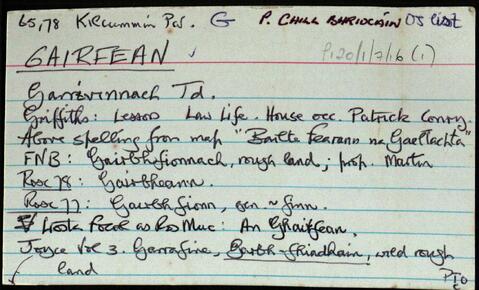 65,78 Kilcummin Par. G P. CHILL BHRIOCÁIN OS list
GAIRFEAN
P120/1/2/16 (1)
Garrivinnach Td.
Griffiths: Lessor Law Life. House occ. Patrick Conry.
Above spelling from map "Bailte Fearann na Gaeltachta"
FNB: Gairbh-fionnach, rough land; prop. Martin
Rosc 78: Gairbheann.
Rosc 77: Gairbhfionn, gen ~ finn.
Liosta Focal as Ros Muc: An Ghairfean.
Joyce Vol 3. Garrafine, Garbh-fhiodhain, wild rough
land
PTO